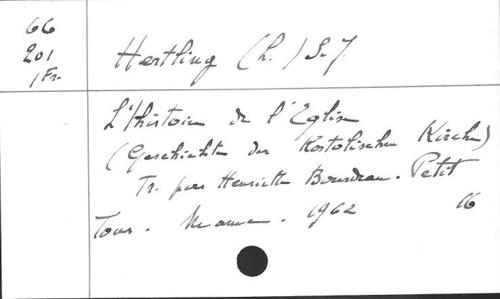 66
201
1 Fr.
Hertling (L.) S.J.
L'histoire de l'Eglise
(Geschichte der Katolischen Kirche)
Tr. par Henriette Bourdeau. Petit
Tours. Mame. 1962 16